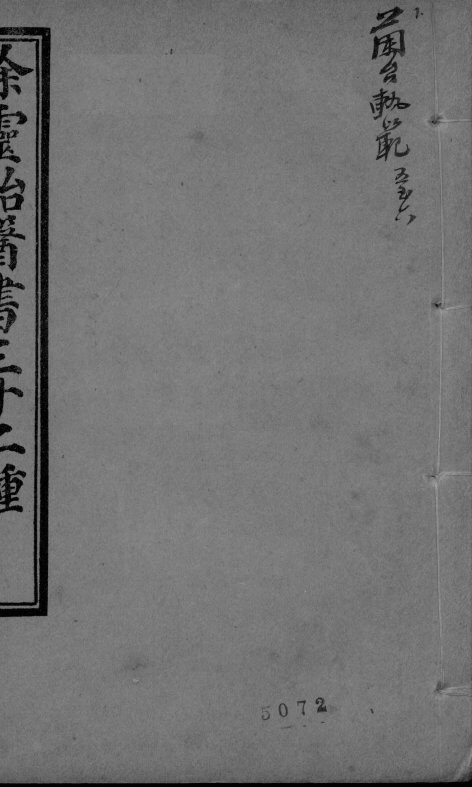 蘭台軌範 五至六
徐靈胎醫書三十二種
5072